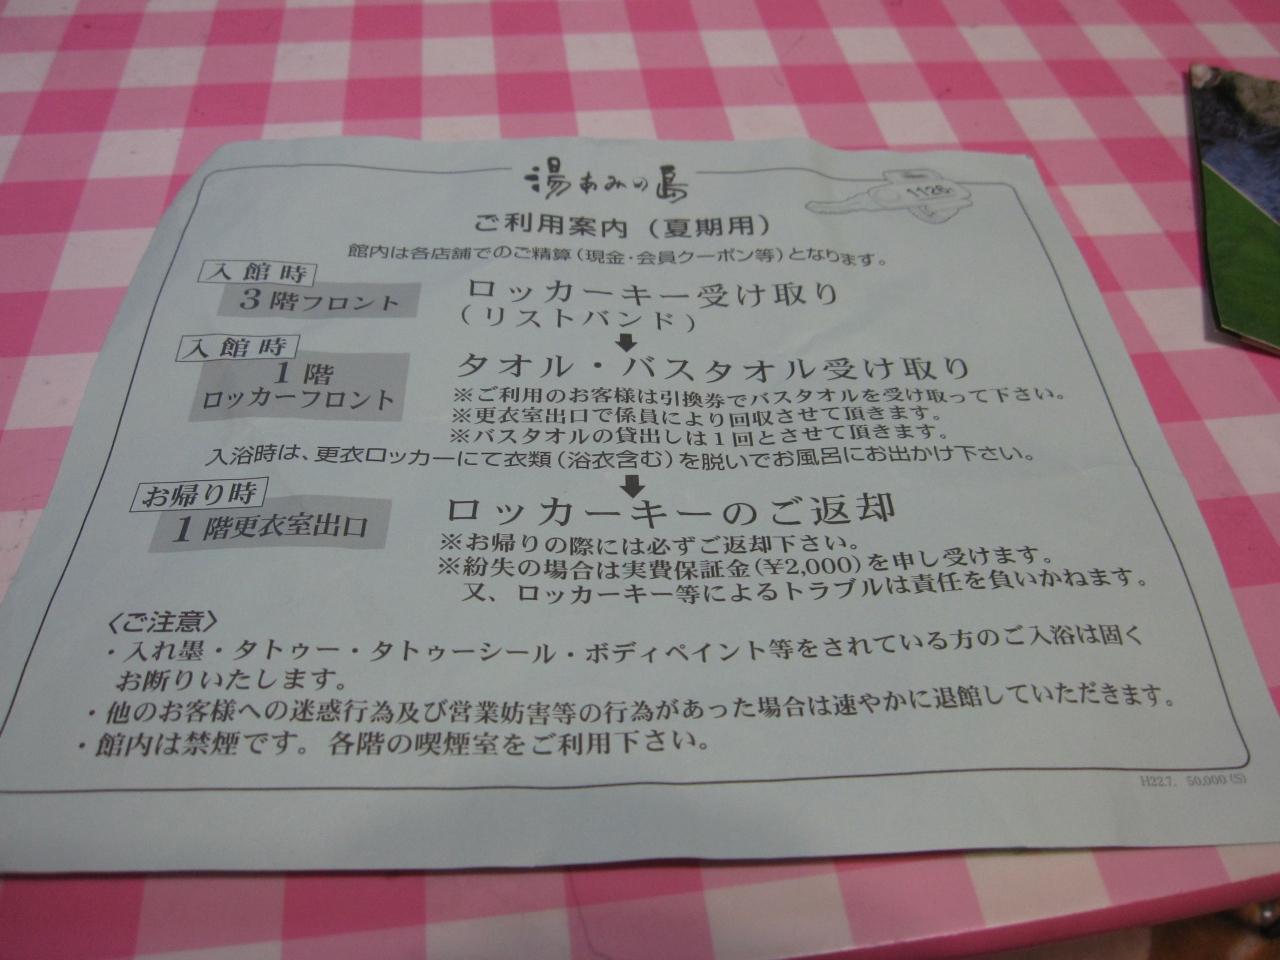 湯あみの島
1126
ご利用案内（夏期用）
館内は各店舗でのご精算（現金・会員クーポン等）となります。
入館時
3階フロント
ロッカーキー受け取り
（リストバンド）
入館時
1階
ロッカーフロント
タオル・バスタオル受け取り
※ご利用のお客様は引換券でバスタオルを受け取って下さい。
※更衣室出口で係員により回収させて頂きます。
※バスタオルの貸出しは1回とさせて頂きます。
入浴時は、更衣ロッカーにて衣類（浴衣含む）を脱いでお風呂にお出かけ下さい。
お帰り時
1階更衣室出口
ロッカーキーのご返却
※お帰りの際には必ずご返却下さい。
※紛失の場合は実費保証金（¥2,000）を申し受けます。
又、ロッカーキー等によるトラブルは責任を負いかねます。
〈ご注意〉
・入れ墨・タトゥー・タトゥーシール・ボディペイント等をされている方のご入浴は固く
お断りいたします。
・他のお客様への迷惑行為及び営業妨害等の行為があった場合は速やかに退館していただきます。
・館内は禁煙です。各階の喫煙室をご利用下さい。
H22.7. 50,000（S）